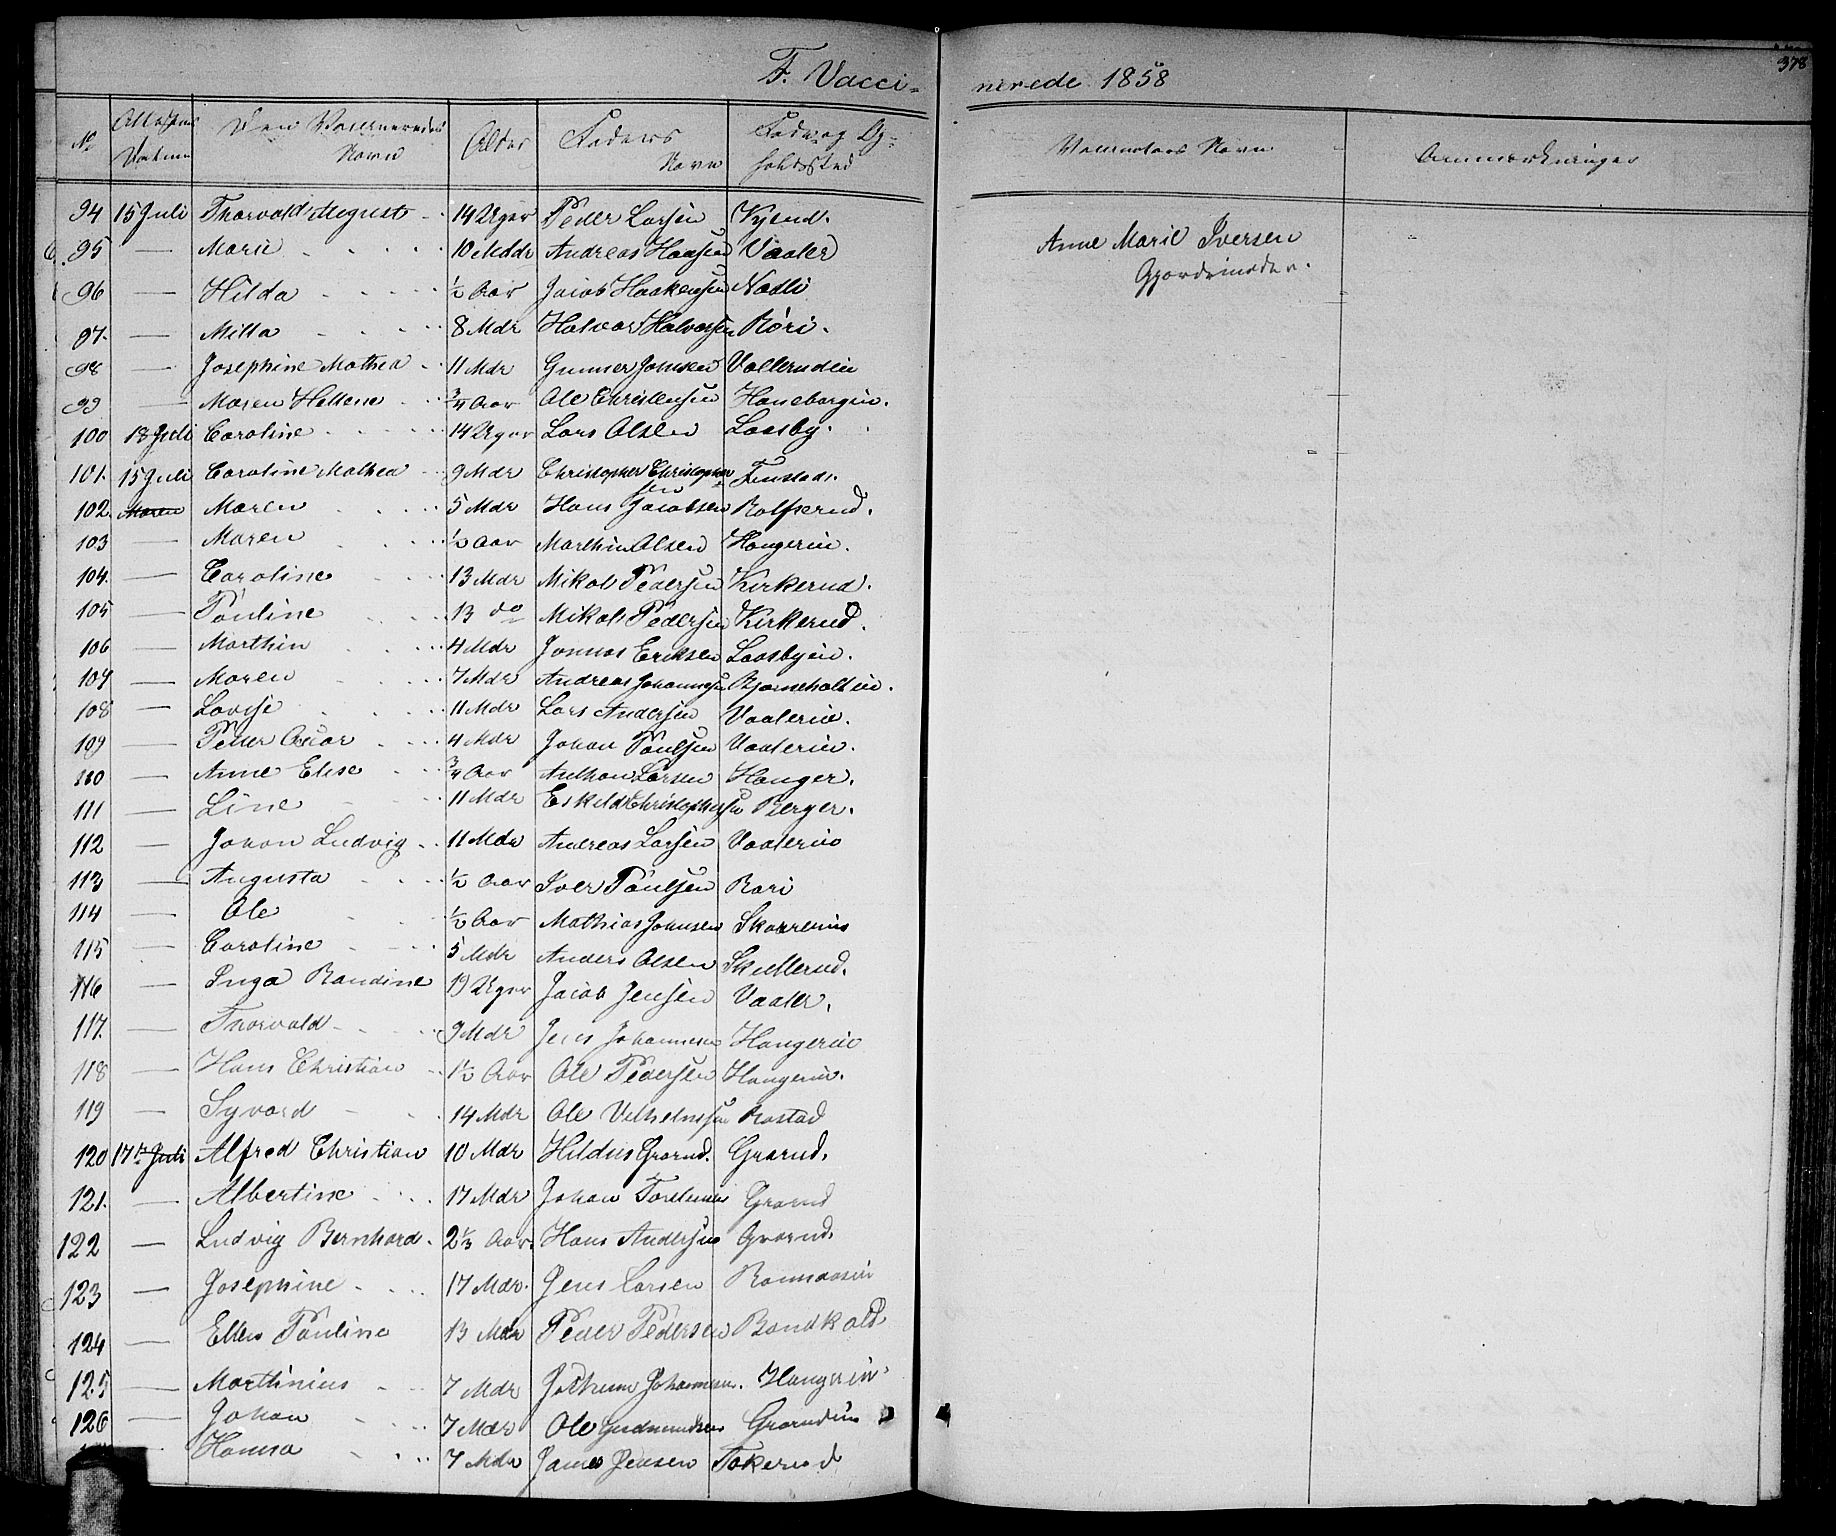 378
F. Vacci-
nerede 1858
No Attestens Datum Den Vaccineredes Navn Alder Faders Navn Føde og Op-holdssted
Vaccinators Navn Anmærkninger
94 15 Juli Thorvald August 14 Uger Peder Larsen Kjend.
95 — Marie 10 Mdr Andreas Hansen Vaaler
Anne Marie Iversen
Gjordemoder.
96 — Hilda ½ Aar Jacob Haakensen Nødli
97. — Milla 8 Mdr Halvor Halvorsen Røri.
98 — Josephine Mathea 11 Mdr Gunner Johnsen Vallerudeie
99 — Maren Hellene ¾ Aar Ole Christensen Haneborgeie.
100 18 Juli Caroline 14 Uger Lars Olsen Laasby.
101. 15 Juli Caroline Mathea 9 Mdr Christopher Christophersen Finstad.
102. Maren Maren 5 Mdr Hans Jacobsen Rolfserud.
103 — Maren ½ Aar Marthin Olsen Haugereie.
104. — Caroline 13 Mdr Mikols Pedersen Kirkerud.
105 — Pauline 13 do Mikols Pedersen Kirkerud.
106 — Marthin 4 Mdr Jonnas Eriksen Laasbyeie.
107 — Maren 7 Mdr Andreas Johannesen Bjørneholteie.
108 — Lovise 11 Mdr Lars Andersen Vaalereie.
109 — Petter Oscar 4 Mdr Johan Paulsen Vaalereie.
110 — Anne Elise ¾ Aar Anthon Larsen Hauger.
111 — Line 11 Mdr Eskild Christophersen Berger.
112 — Johan Ludvig 11 Mdr Andreas Larsen Vaalereie
113 — Augusta ½ Aar Iver Paulsen Røri
114 — Ole ½ Aar Mathias Johnsen
115 — Caroline 5 Mdr Anders Olsen Skullerud.
116 — Inga Randine 19 Uger Jacob Jensen Vaaler.
117. — Thorvald 9 Mdr Jens Johannesen Haugereie
118 — Hans Christian 1½ Aar Ole Pedersen Haugereie.
119 — Syvard 14 Mdr Ole Vilhelmsen Rostad
120 17de Juli Alfred Christian 10 Mdr Hildus Grorud. Grorud.
121. — Albertine 17 Mdr Johan Torstensen Grorud
122 — Ludvig Bernhard. 2⅓ Aar. Hans Andersen Grorud.
123 — Josephine 17 Mdr. Jens Larsen Rammaaseie
124 — Ellen Pauline 13 Mdr Peder Pedersen Bondkold
125 — Marthinius 7 Mdr Jochum Johannesen. Haugereie
126 — Johan 7 Mdr Ole Gudmundsen Grorudeie
— Hansa 7 Mdr James Jensen Tokerud